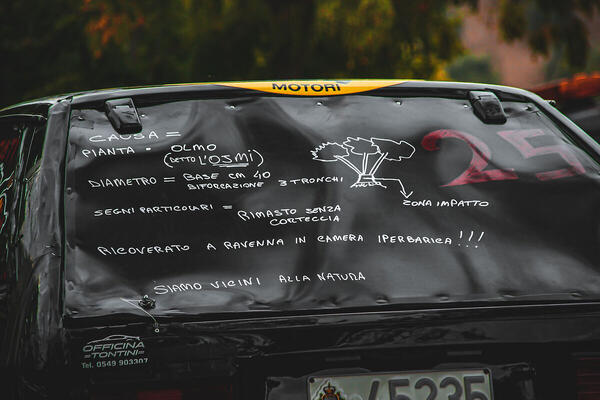 MOTORI
CAUSA =
PIANTA = OLMO
(DETTO L'OSMI)
25
DIAMETRO = BASE CM 40
BIFORCAZIONE 3 TRONCHI
ZONA IMPATTO
SEGNI PARTICOLARI = RIMASTO SENZA
CORTECCIA
RICOVERATO A RAVENNA IN CAMERA IPERBARICA!!!
SIAMO VICINI ALLA NATURA
OFFICINA
=TONTINI=
Tel. 0549 903307
45235